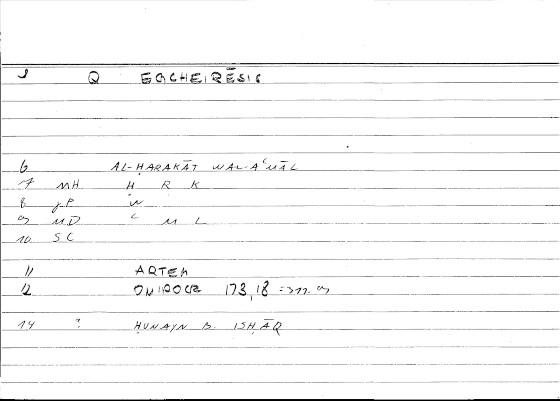 1 Q EGCHEIRĒSIS
6 AL-ḤARAKĀT WAL-AʿMĀL
7 MH Ḥ R K
8 gP W
9 MD ʿ M L
10 SC
11 ARTEM
12 ONIROCR 173,18 = 311.9
14 ? ḤUNAYN B. ISḤĀQ